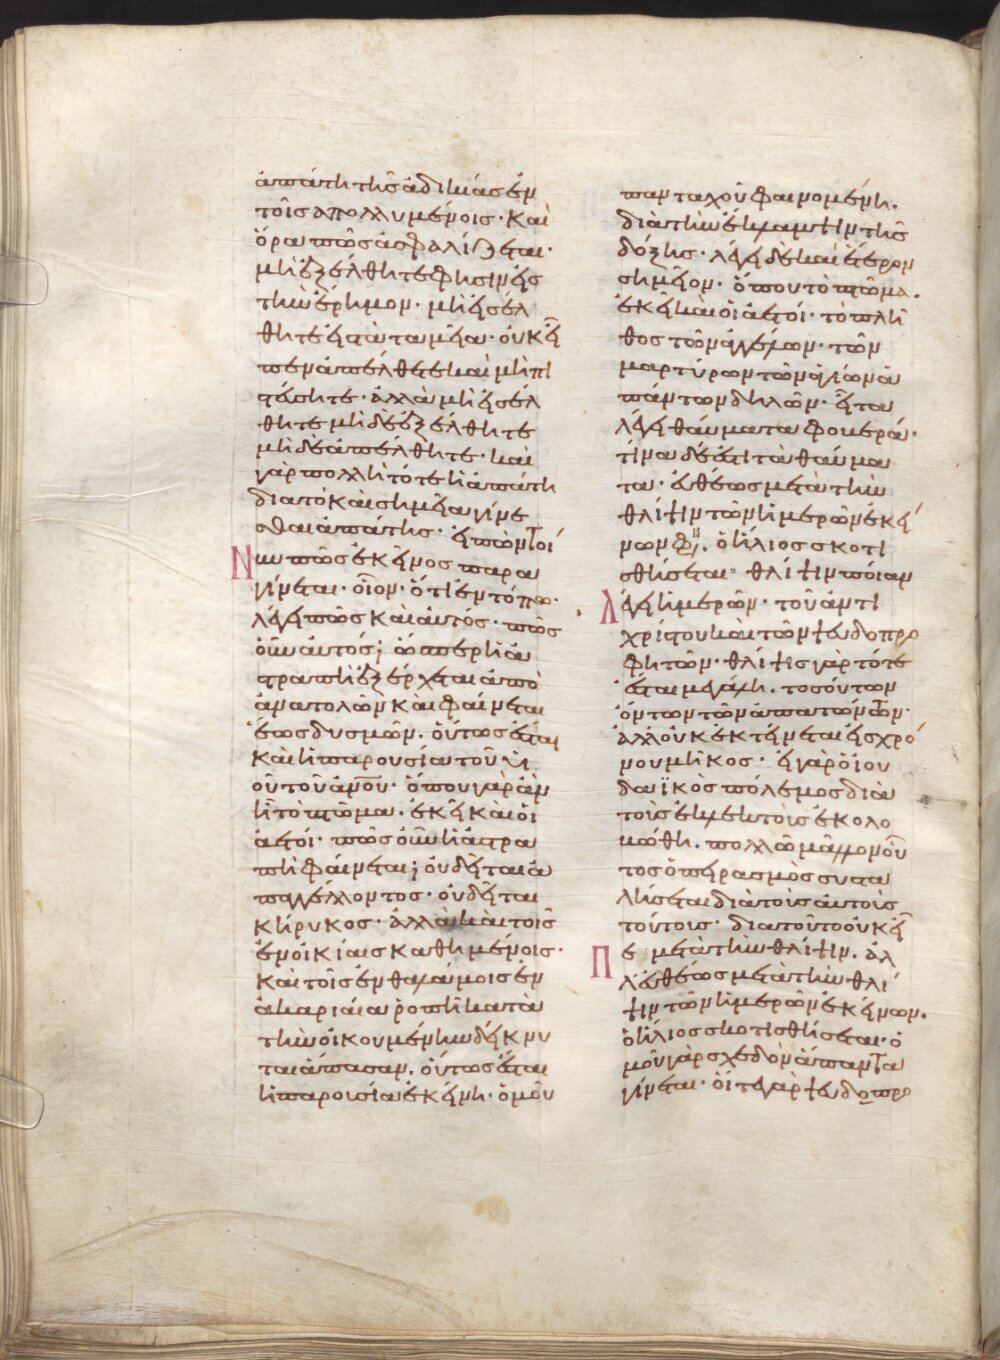 ἀπάτη τῆς ἀδικίας ἐν
τοῖς ἀπολλυμένοις· καὶ
ὅρα πῶς ἀσφαλίζεται·
μὴ ἐξέλθητε φησὶν εἰς
τὴν ἔρημον· μὴ εἰσέλ
θητε εἰς τὰ ταμεῖα· οὐκ εἶ
πεν ἀπέλθετε καὶ μὴ πι
στεύσητε· ἀλλὰ μὴ εἰσέλ
θητε μηδὲ ἐξέλθητε
μηδὲ ἀπέλθητε· καὶ
γὰρ πολλὴ τότε ἡ ἀπάτη
διατὸ καὶ σημεῖα γίνε
σθαι ἀπάτης· εἰπὼν τοί
Νυν πῶς ἐκεῖνος παρα
γίνεται· οἷον· ὅτι ἐν τόπω·
λέγει πῶς καὶ αὐτός· πῶς
οὖν αὐτός; ὥσπερ ἡ ἀ
στραπὴ ἐξέρχεται ἀπὸ
ἀνατολῶν καὶ φαίνεται
ἕως δυσμῶν. οὕτως ἔσται
καὶ ἡ παρουσία τοῦ υἱ
οῦ τοῦ ἀν̅ο̅υ̅· ὅπου γὰρ ἂν
ἦ τὸ πτῶμα· ἐκεῖ καὶ οἱ
ἀετοί· πῶς οὖν ἡ ἀστρα
πὴ φαίνεται; οὐ δεῖται ἀ
παγγέλλοντος· οὐ δεῖται
κήρυκος· ἀλλὰ καὶ τοῖς
ἐν οἰκίαις καθημένοις·
καὶ τοῖς ἐν θαλάμοις ἐν
ἀκαριαία ῥοπῆ κατὰ
τὴν οἰκουμένην δείκνυ
ται ἅπασαν. οὕτως ἔσται
ἡ παρουσία ἐκείνη· ὁμοῦ
πανταχοῦ φαινομένη.
διὰ τὴν ἔκλαμψιν τῆς
δόξης· λέγει δὲ καὶ ἕτερον
σημεῖον· ὅπου τὸ πτῶμα.
ἐκεῖ καὶ οἱ ἀετοί· τὸ πλῆ
θος τῶν ἀγγέλων· τῶν
μαρτύρων τῶν ἁγίων ἁ
πάντων δηλῶν· εἶτα
λέγει θαύματα φοβερά·
τίνα δέ ἐστι τὰ θαύμα
τα· εὐθέως μετὰ τὴν
θλίψιν τῶν ἡμερῶν ἐκεί
νων φη. ὁ ἥλιος σκοτι
σθήσεται· θλίψιν ποίαν
Λέγει ἡμερῶν· τοῦ ἀντι
χρίστου καὶ τῶν ψευδοπρο
φητῶν· θλίψις γὰρ τότε
ἔσται μεγάλη. τοσούτων
ὄντων τῶν ἀπατώντων·
ἀλλ' οὐκ ἐκτείνεται εἰς χρό
νου μῆκος· εἰ γὰρ ὁ ἰου
δαϊκὸς πόλεμος διὰ
τοὺς ἐκλεκτοὺς ἐκολο
βώθη. πολλῶ μᾶλλον οὗ
τος ὁ πειρασμὸς συστα
λήσεται διὰ τοὺς αὐτοὺς
τούτους· διατοῦτο οὐκ εἶ
Πε μετὰ τὴν θλίψιν. ἀλ
λ' εὐθέως μετὰ τὴν θλί
ψιν τῶν ἡμερῶν ἐκείνων.
ὁ ἥλιος σκοτισθήσεται· ὁ
μοῦ γὰρ σχεδὸν ἅπαντα
γίνεται· οἵ τε γὰρ ψευδοπρο